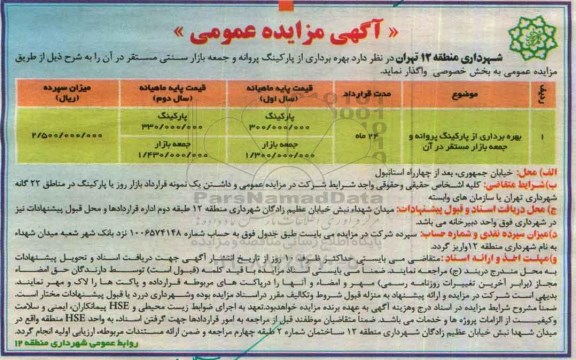 « آگهی مزایده عمومی »
شهرداری منطقه ۱۲ تهران در نظر دارد بهره برداری از پارکینگ پروانه و جمعه بازار سنتی مستقر در آن را به شرح ذیل از طریق
مزایده عمومی به بخش خصوصی واگذار نماید.
ردیف
موضوع
مدت قرارداد
قیمت پایه ماهیانه (سال اول)
قیمت پایه ماهیانه (سال دوم)
میزان سپرده (ریال)
۱
بهره برداری از پارکینگ پروانه و جمعه بازار مستقر در آن
۲۴ ماه
پارکینگ
۳۰۰/۰۰۰/۰۰۰
پارکینگ
۳۳۰/۰۰۰/۰۰۰
جمعه بازار
۱/۳۰۰/۰۰۰/۰۰۰
جمعه بازار
۱/۴۳۰/۰۰۰/۰۰۰
۲/۵۰۰/۰۰۰/۰۰۰
الف) محل: خیابان جمهوری، بعد از چهارراه استانبول
ب) شرایط متقاضی: کلیه اشخاص حقیقی و حقوقی واجد شرایط شرکت در مزایده عمومی و داشتن یک نمونه قرارداد بازار روز یا پارکینگ در مناطق ۲۲ گانه
شهرداری تهران یا سازمان های وابسته
ج) محل دریافت اسناد و قبول پیشنهادات: میدان شهداء نبش خیابان عظیم زادگان شهرداری منطقه ۱۲ طبقه دوم اداره قراردادها و محل قبول پیشنهادات نیز
در شهرداری فوق واحد دبیرخانه می باشد
د) میزان سپرده نقدی و شماره حساب: سپرده شرکت در مزایده می بایست طبق جدول فوق به حساب شماره ۱۰۰۶۵۷۴۱۴۸ نزد بانک شهر شعبه میدان شهداء
به نام شهرداری منطقه ۱۲ واریز گردد.
و) مهلت اخذ و ارائه اسناد: متقاضی می بایستی حداکثر ظرف ۱۰ روز از تاریخ انتشار آگهی جهت دریافت اسناد و تحویل پیشنهادات
به محل مندرج دربند (ج) مراجعه نمایند ضمناً می بایستی اسناد مزایده با قید کلمه (قبول است) توسط دارندگان حق امضاء
مجاز (برابر آخرین تغییرات روزنامه رسمی) مهر و امضاء و آنها را درپاکت های مربوطه قرارداده و پاکت ها را لاک و مهر نمایند.
بدیهی است شرکت در مزایده و ارائه پیشنهاد به منزله قبول شروط وتکالیف مقرر دراسناد مزایده بوده وشهرداری دررد یا قبول پیشنهادات مختار است.
ضمناً مشروح شرایط مزایده در اسناد درج وهزینه آگهی به عهده برنده مزایده خواهدبود.تعهد به اجرای ضوابط زیست محیطی و HSE پیمانکاران، ایمنی و سلامت
وکیفیت از الزامات پروژه ها و خدمات می باشد. ضمناً متقاضیان موظفند قبل از مراجعه به امور قراردادها جهت گرفتن اسناد، به واحد HSE منطقه واقع در
میدان شهدا نبش خیابان عظیم زادگان شهرداری منطقه ۱۲ ساختمان شماره ۲ طبقه چهارم مراجعه و ضمن ارائه مستندات مربوطه، ارزیابی اولیه انجام گردد.
روابط عمومی شهرداری منطقه ۱۲
ParsNamadData